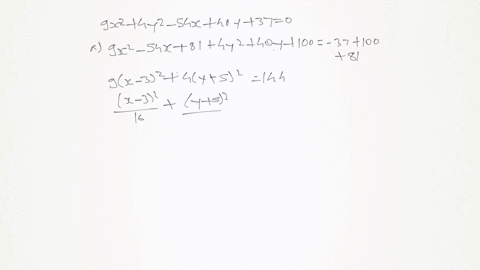 9x²+4y2-54x+40y+37=0
a) 9x²-54x+81+4y2+40y+100=-37+100
+81
9(x-3)²+4(y+5)²=144
(x-3)²/16 + (y+5)²/